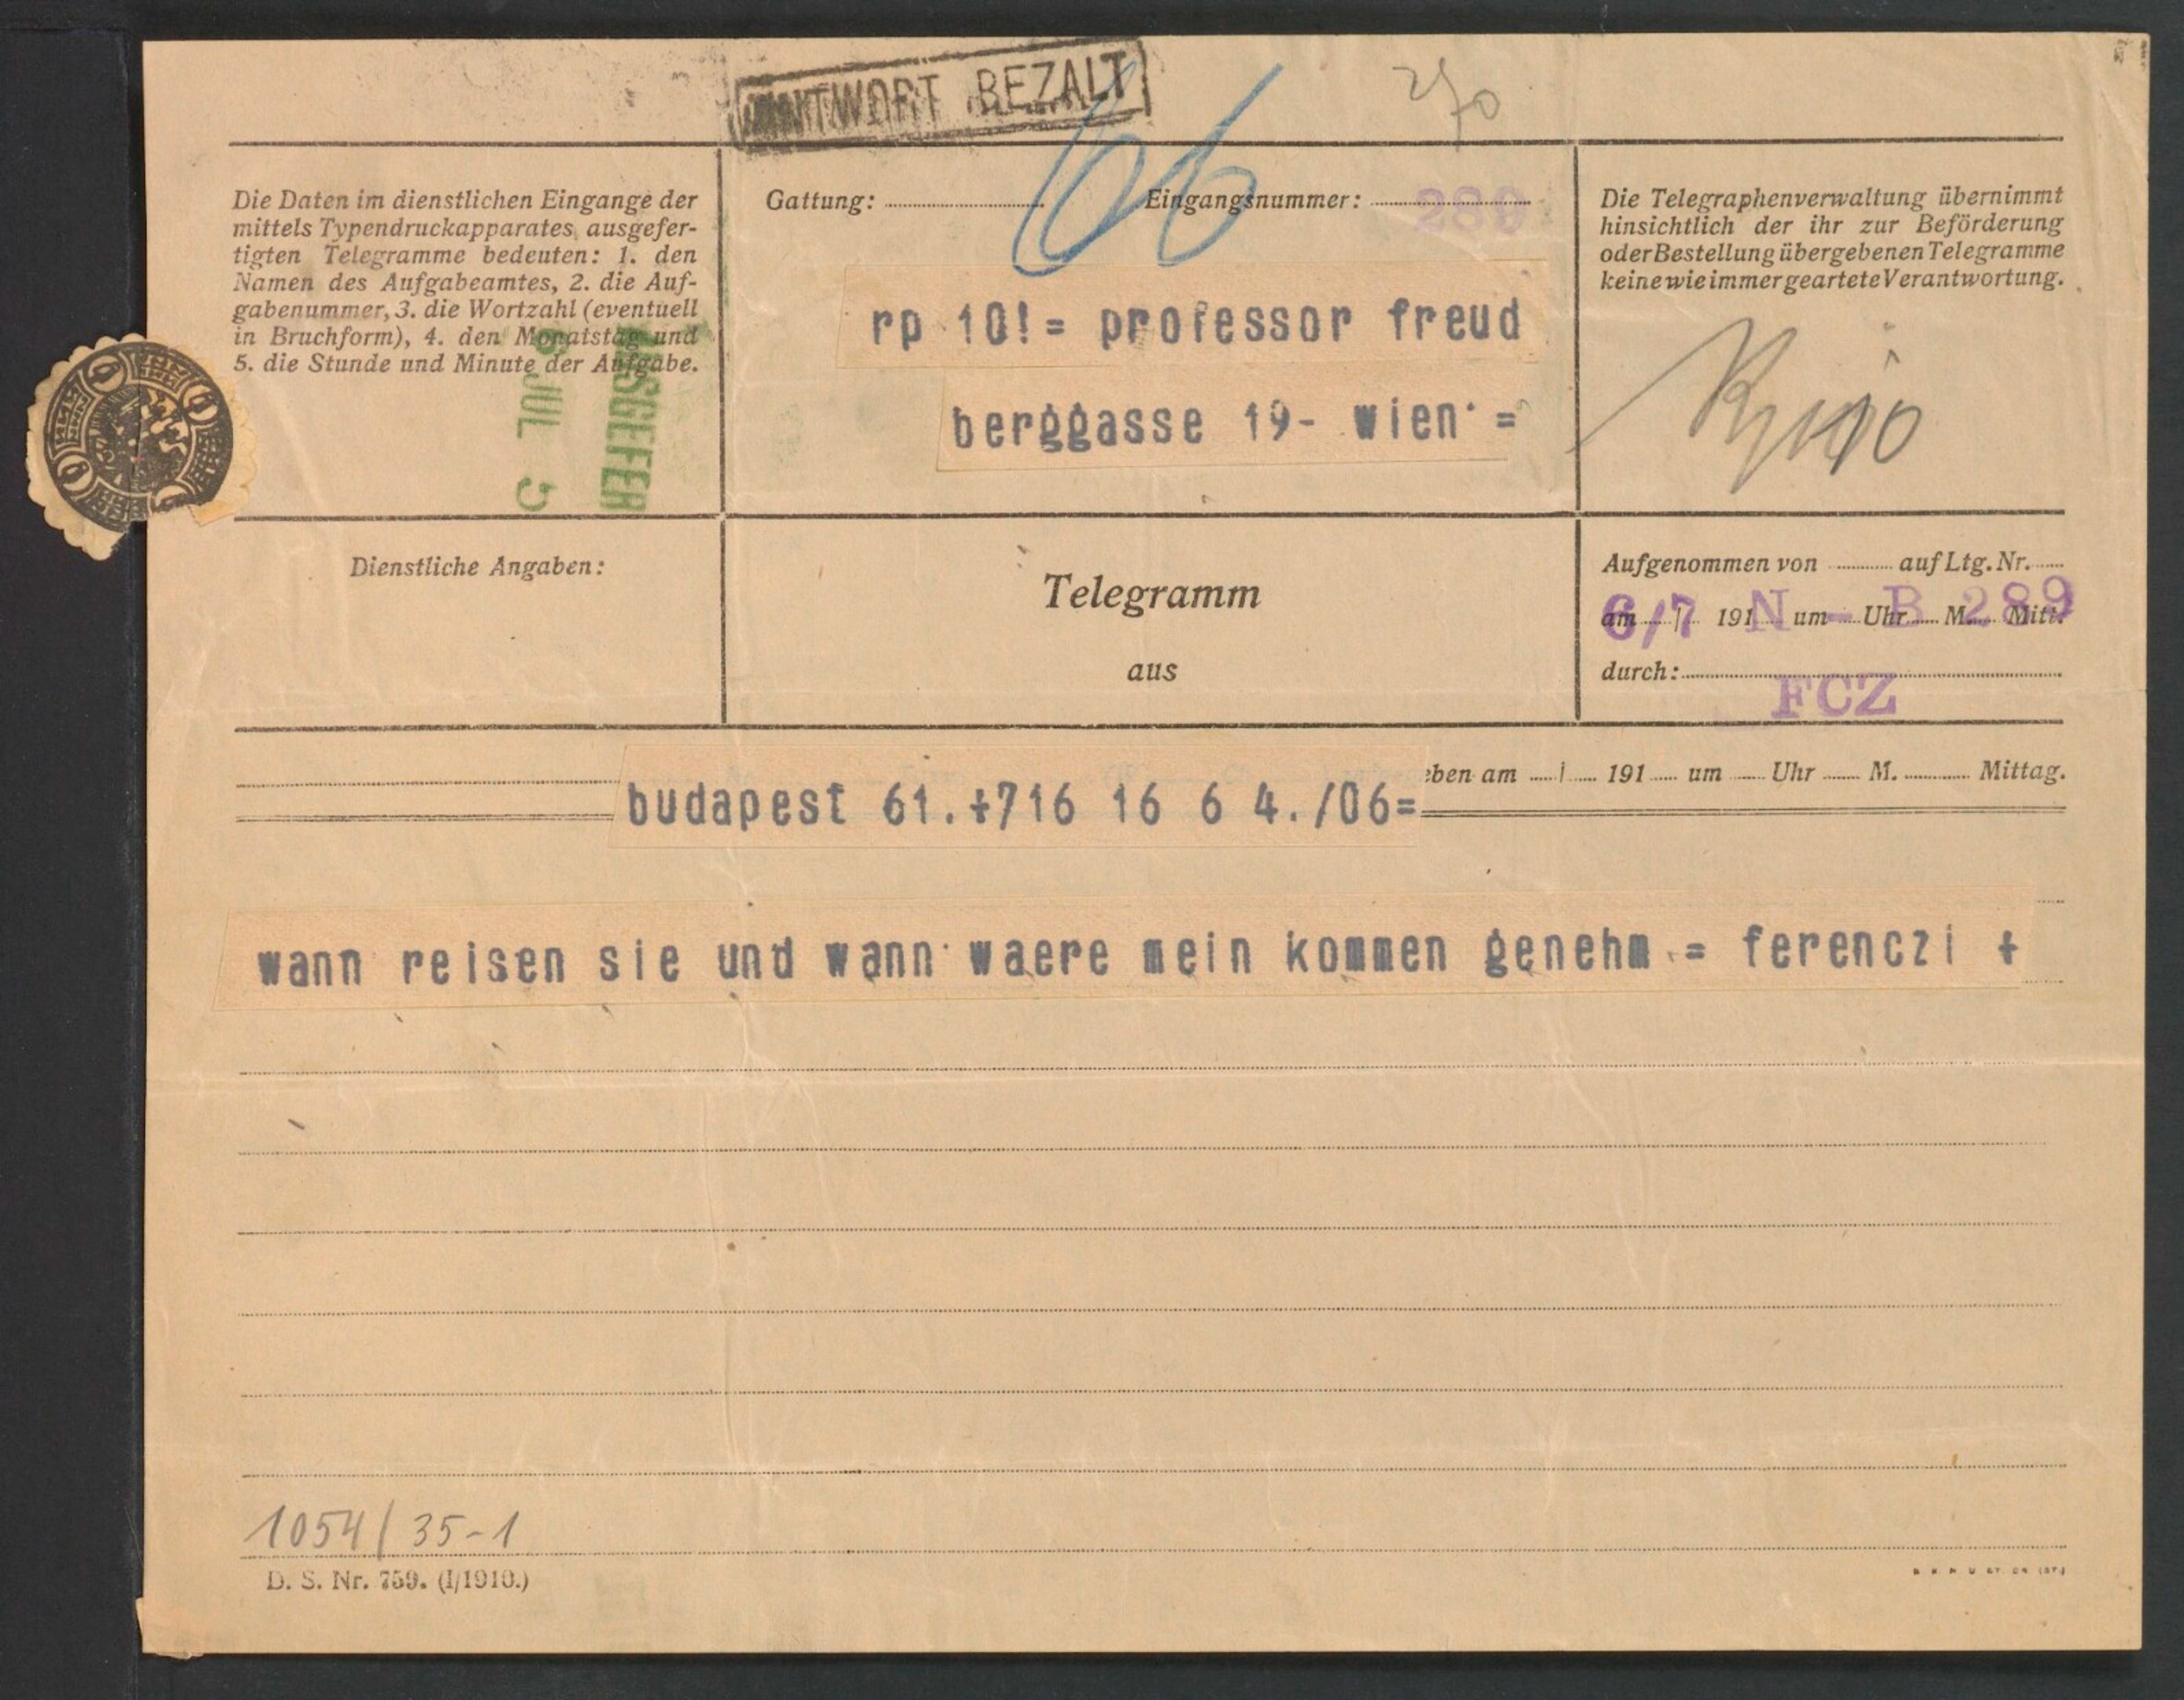 ANTWORT BEZALT
270
66
Die Daten im dienstlichen Eingange der
mittels Typendruckapparates ausgefer-
tigten Telegramme bedeuten: 1. den
Namen des Aufgabeamtes, 2. die Auf-
gabenummer, 3. die Wortzahl (eventuell
in Bruchform), 4. den Monatstag und
5. die Stunde und Minute der Aufgabe.
6 JUL 5
Gattung:
Eingangsnummer: 289
rp 10!= professor freud
berggasse 19- wien =
Die Telegraphenverwaltung übernimmt
hinsichtlich der ihr zur Beförderung
oder Bestellung übergebenen Telegramme
keine wie immer geartete Verantwortung.
Dienstliche Angaben:
Telegramm
aus
Aufgenommen von auf Ltg. Nr.
am / 191 um Uhr M. Mitt.
6/7 N - B 289
durch:
FCZ
budapest 61.+716 16 6 4./06=
eben am / 191 um Uhr M. Mittag.
wann reisen sie und wann waere mein kommen genehm.= ferenczi +
1054/35-1
D. S. Nr. 759. (I/1910.)